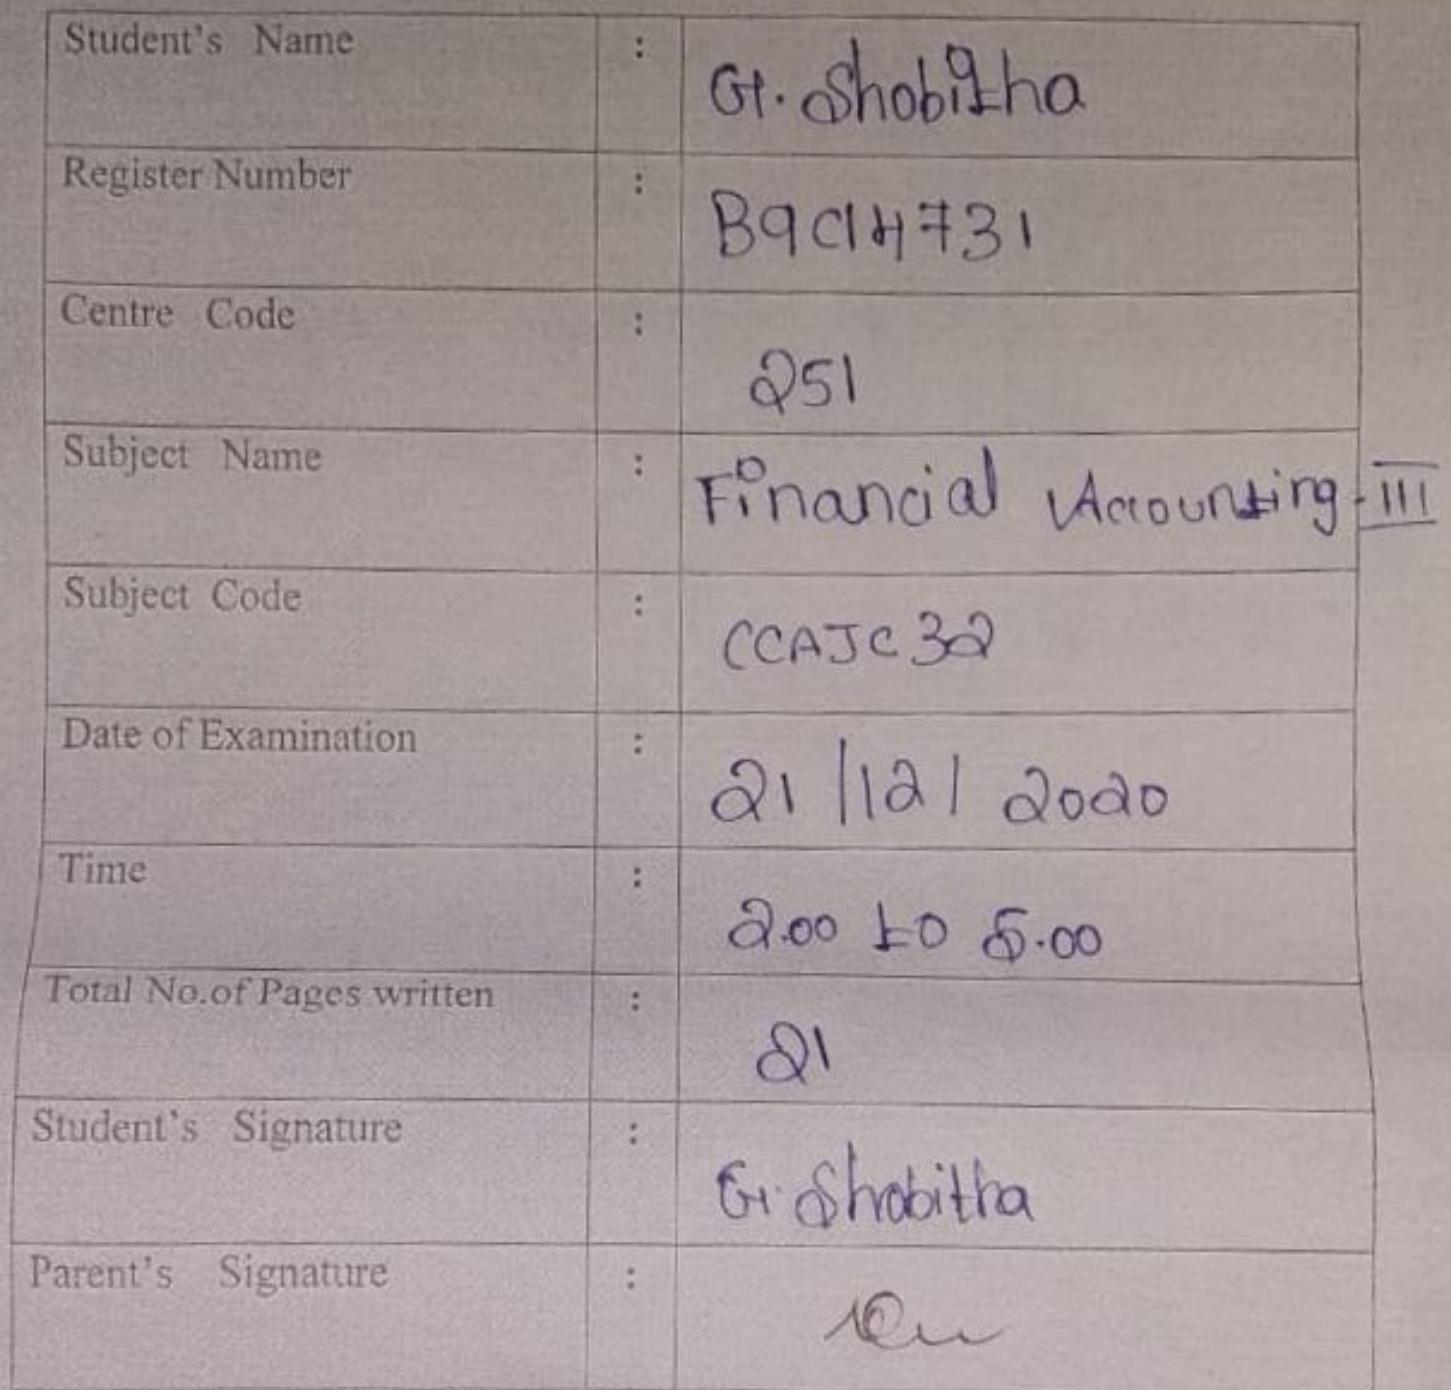 Student's Name : G. Shobitha
Register Number : B9C14731
Centre Code : 251
Subject Name : Financial Accounting-III
Subject Code : CCAJC32
Date of Examination : 21/12/2020
Time : 2.00 to 5.00
Total No.of Pages written : 21
Student's Signature : G. Shobitha
Parent's Signature :